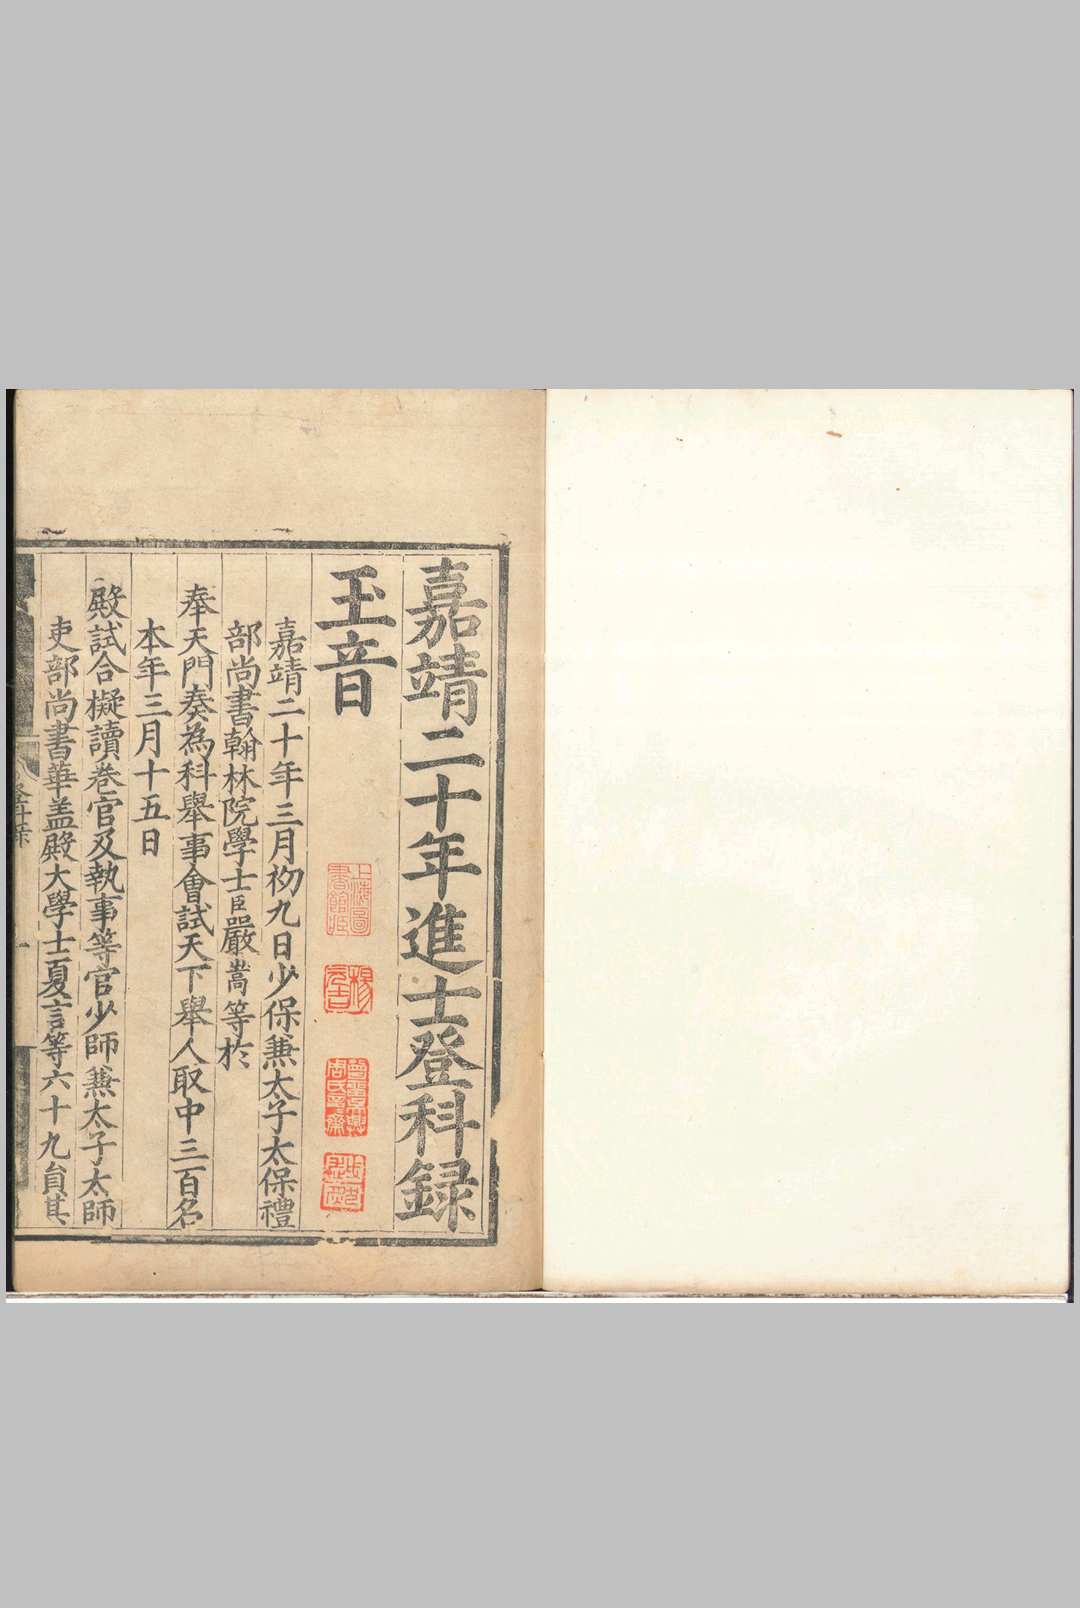 嘉靖二十年進士登科録
玉音
嘉靖二十年三月初九日少保兼太子太保禮
部尚書翰林院學士臣嚴嵩等於
奉天門奏為科舉事會試天下舉人取中三百名
本年三月十五日
殿試合擬讀卷官及執事等官少師兼太子太師
吏部尚書華盖殿大學士夏言等六十九員其
上海圖
書館藏